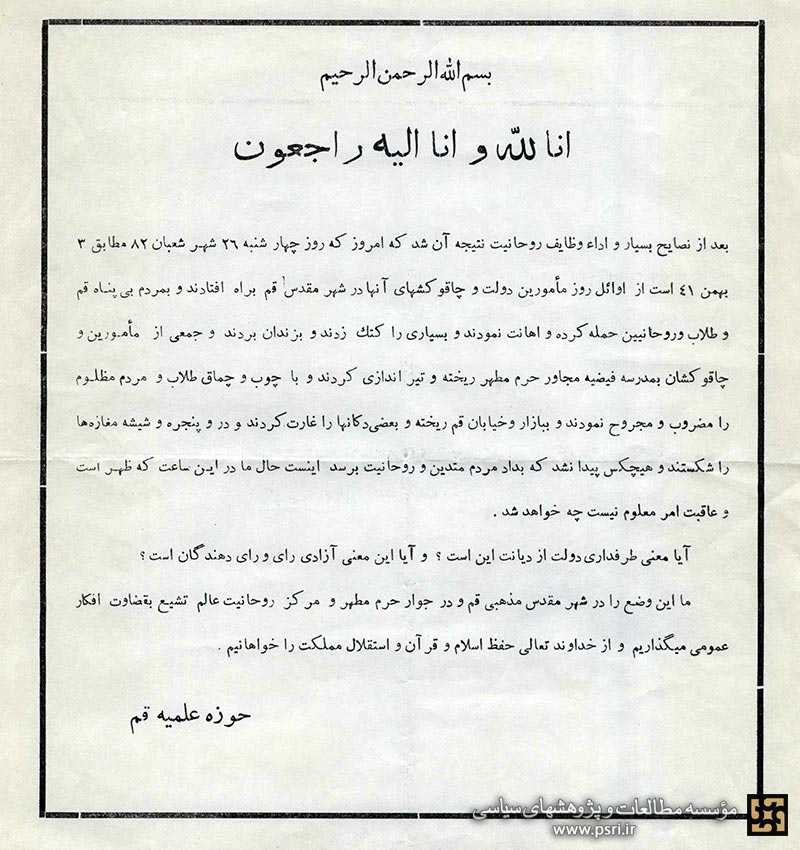 بسم الله الرحمن الرحیم
انا لله و انا الیه راجعون
بعد از نصایح بسیار و اداء وظایف روحانیت نتیجه آن شد که امروز که روز چهار شنبه ۲۶ شهر شعبان ۸۲ مطابق ۳
بهمن ٤١ است از اوائل روز مأمورین دولت و چاقوکشهای آنها در شهر مقدس قم براه افتادند و بمردم بی پناه قم
و طلاب وروحانیین حمله کرده و اهانت نمودند و بسیاری را کتك زدند و بزندان بردند و جمعی از مأمورین و
چاقوکشان بمدرسه فیضیه مجاور حرم مطهر ریخته و تیر اندازی کردند و با چوب و چماق طلاب و مردم مظلوم
را مضروب و مجروح نمودند و ببازار وخیابان قم ریخته و بعضی دکانها را غارت کردند و در و پنجره و شیشه مغازه‌ها
را شکستند و هیچکس پیدا نشد که بداد مردم متدین و روحانیت برسد اینست حال ما در این ساعت که ظهر است
و عاقبت امر معلوم نیست چه خواهد شد .
آیا معنی طرفداری دولت از دیانت این است ؟ و آیا این معنی آزادی رای و رای دهندگان است ؟
ما این وضع را در شهر مقدس مذهبی قم و در جوار حرم مطهر و مرکز روحانیت عالم تشیع بقضاوت افکار
عمومی میگذاریم و از خداوند تعالی حفظ اسلام و قرآن و استقلال مملکت را خواهانیم .
حوزه علمیه قم
مؤسسه مطالعات و پژوهشهای سیاسی
www.psri.ir